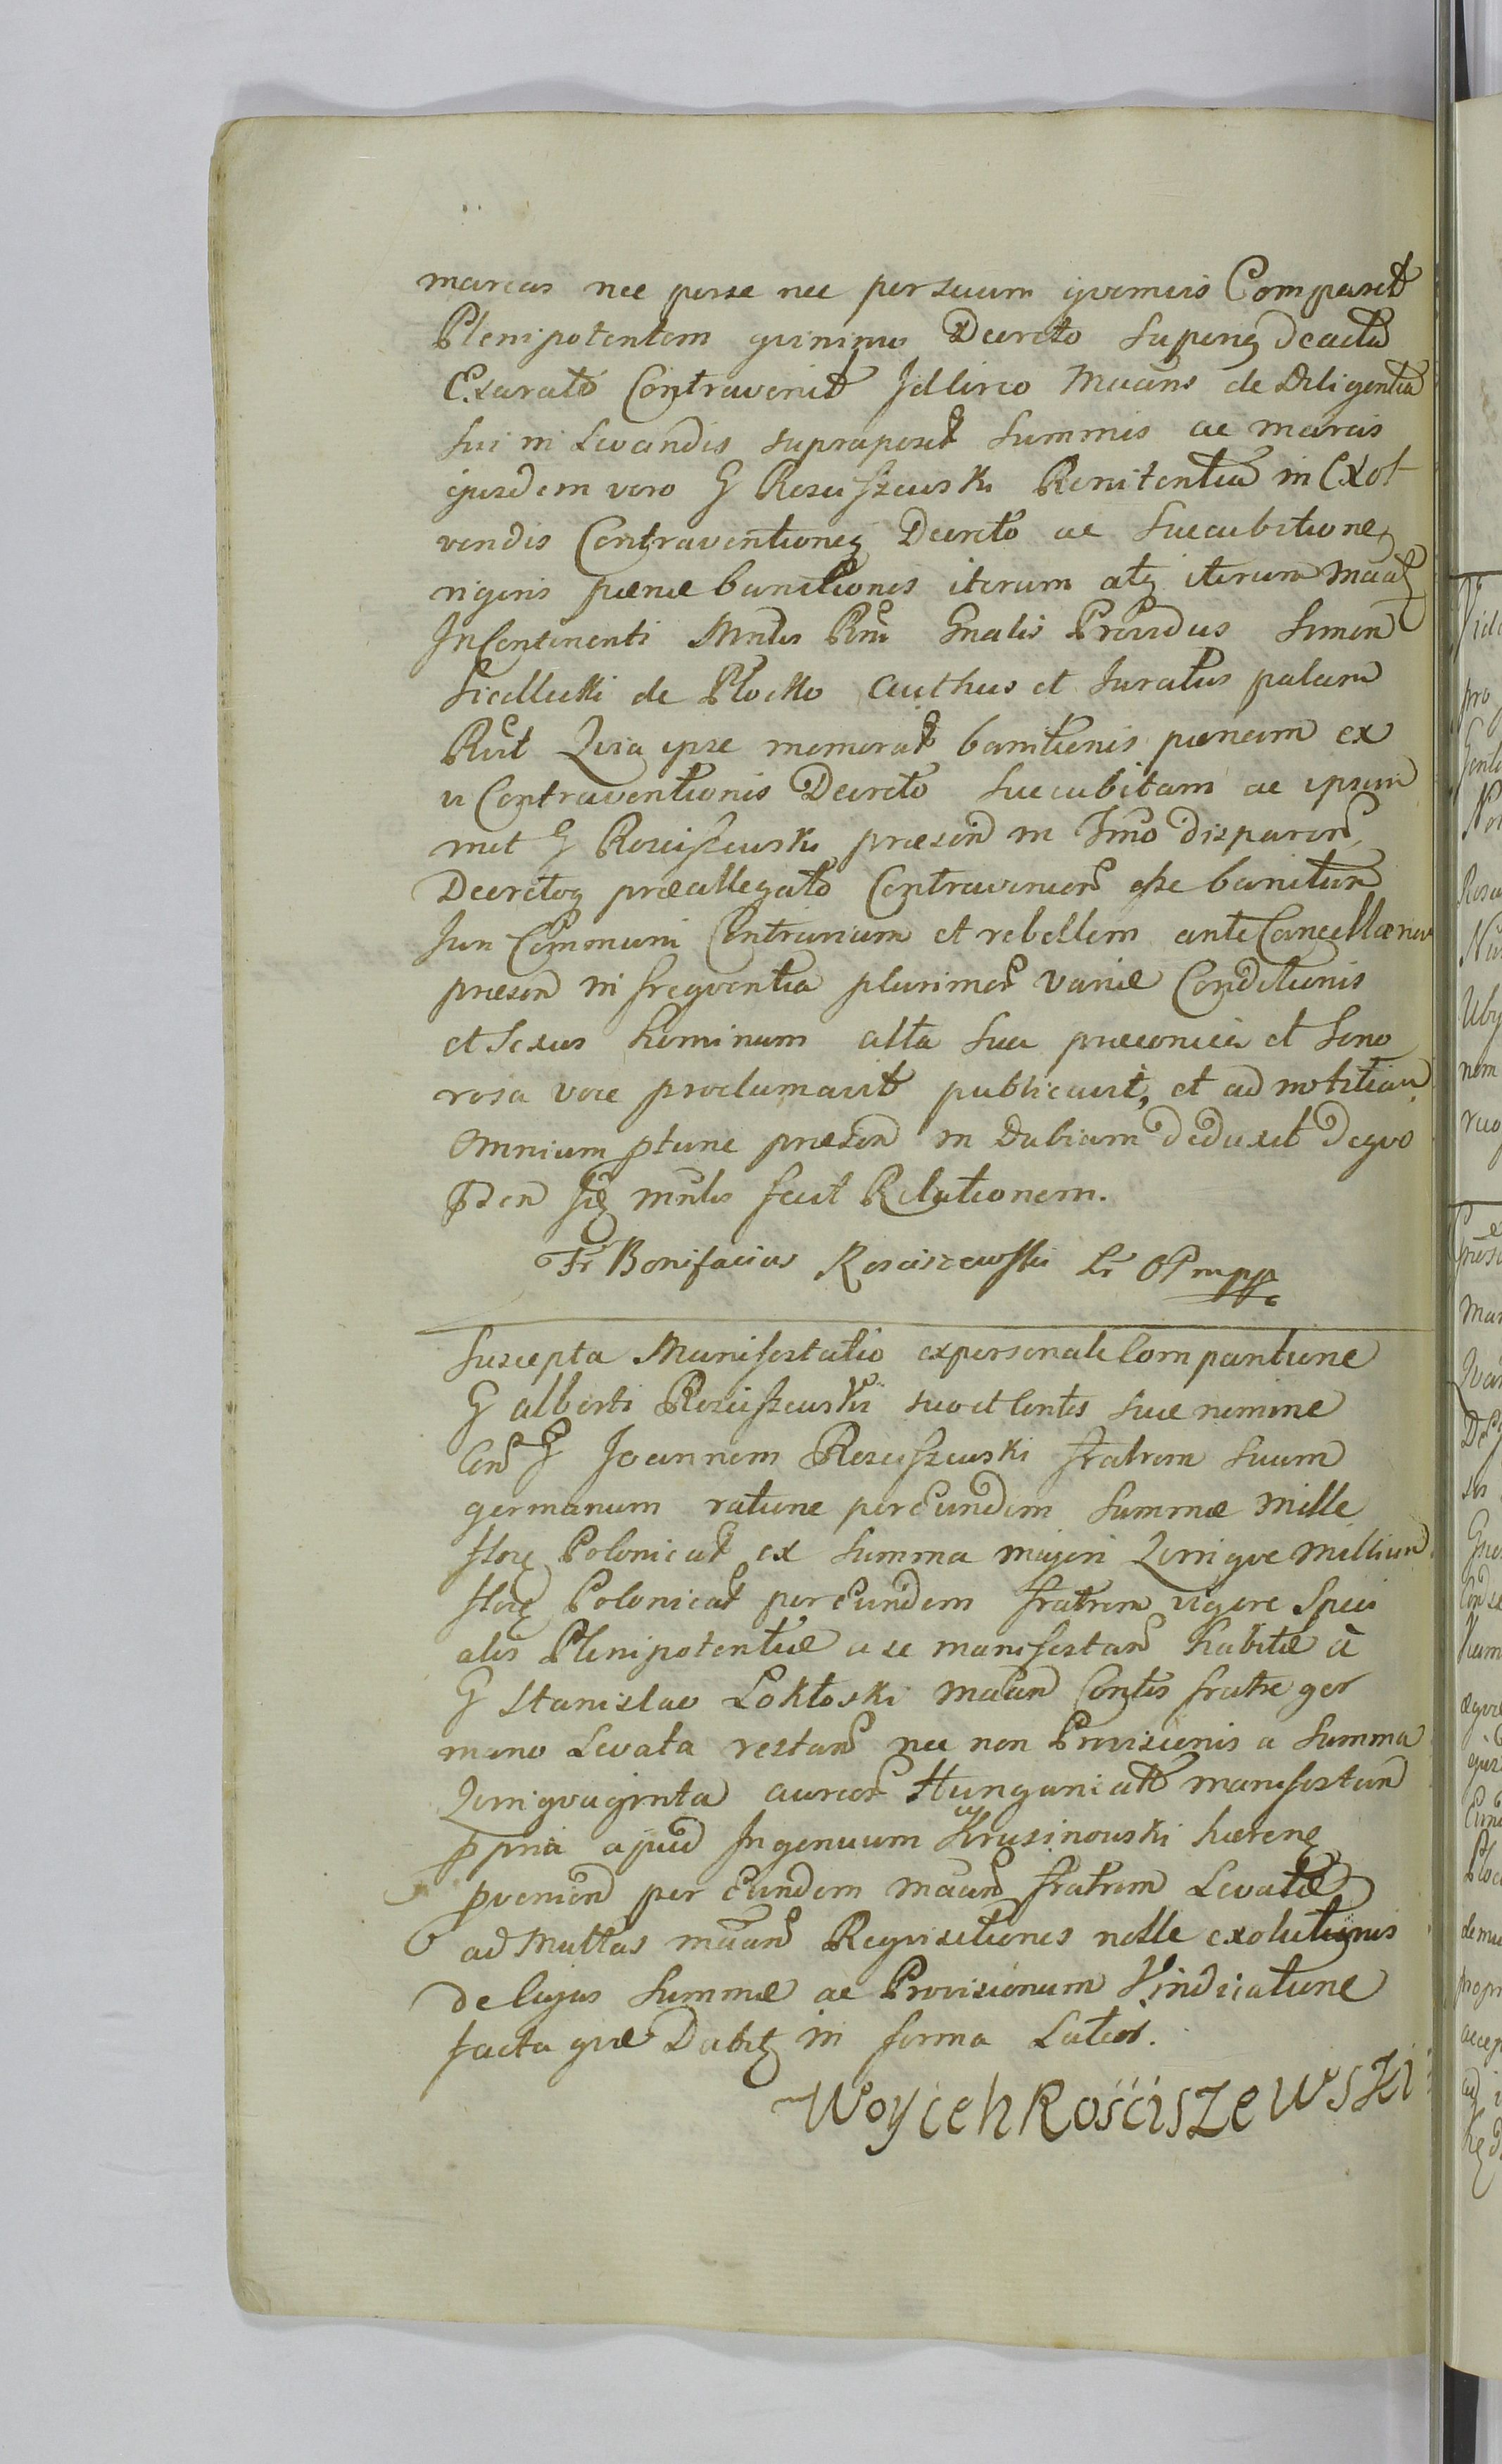 marcas nec per se nec per suum qvemvis Comparet
Plenipotentem qvinimo Decreto superq3 deactu
Exarato Contravenit Idcirco Maãns de Diligentia
sui in Levandis supraposit summis ac marcis
ejusdem vero G Rosciszewski Renitentia in Exol
vendis Contraventioneq3 Decreto ac succubitione
rigoris pænæ banitionis iterum atq3
In Continenti Mnlis Rni Gnalis Providus Simon
de Plocko authus et Juratus palam
Rlt Qvia ipse memorat banitionis pænam ex
vi Contraventionis Decreto succubitam ac ipsum
met G Rosciszewski præsen in Tmo disparen
Decretoq3 præallegato Contravenien esse banitum
Juri Communi Contrarium et rebellem ante Cancellariam
præsen in freqventia plurimor variæ Conditionis
et sexus hominum alta sua præconica et sono
rosa voce proclamavit publicavit, et ad notitiam
Omnium ptunc præsen in dubiam deduxit deqvo
mnlis fecit Relationem.
Fr Bonifacius Rosciszewski OP mpp
Suscepta Manifestatio ex personali Comparitione
G alberti Rosciszewski suo et Contis suæ nomine
Con G Joannem Rosciszewski fratrem suum
germanum ratione per Eundem summæ mille
flor Polonicat ex summa majori Qvinqve millium
flor Polonicat per Eundem fratrem vigore Speci
alis Plenipotentiæ a se manifestan habitæ à
G Stanislao Loktoski maãn Contis fratre ger
mano Levata restan nec non Provisionis a summa
Qvinqvaginta aureor Hungaricat manifestan
ppria apud Ingenuum Krusinowski hæren
pvenien per Eundem maãn fratrem Levatæ
ad Multas maãn Reqvisitiones nolle exolutionis
de Cujus summæ ac Provisionum Vindicatione
facta qvæ Dabit in forma Latior.
Woyciech Rościszewski